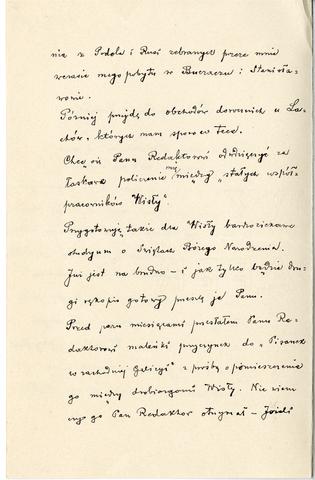 nia z Podola i Rusi zebranych przeze mnie
wczasie mego pobytu w Buczaczu i Stanisła-
wowie.
Później przyjdą do obchodów dorocznych u La-
chów, których mam sporo w tece.
Chcę oś Panu Redaktorowi odwdzięczyć za
łaskawe policzenie mię między „stałych współ-
pracowników Wisły".
Przygotowuję także dla "Wisły bardzo ciekawe
studyum o Świętach Bożego Narodzenia.
Już jest na brudno – i jak tylko będzie dru-
gi rękopis gotowy prześlę ją Panu.
Przed paru miesiącami przesłałem Panu Re-
daktorowi maleńki przyczynek do „Pisanek
w zachodniej Galicyi" z prośbą o pomieszczenie
go między drobiazgami Wisły. Nie wiem
czy go Pan Redaktor otrzymał – Jeżeli